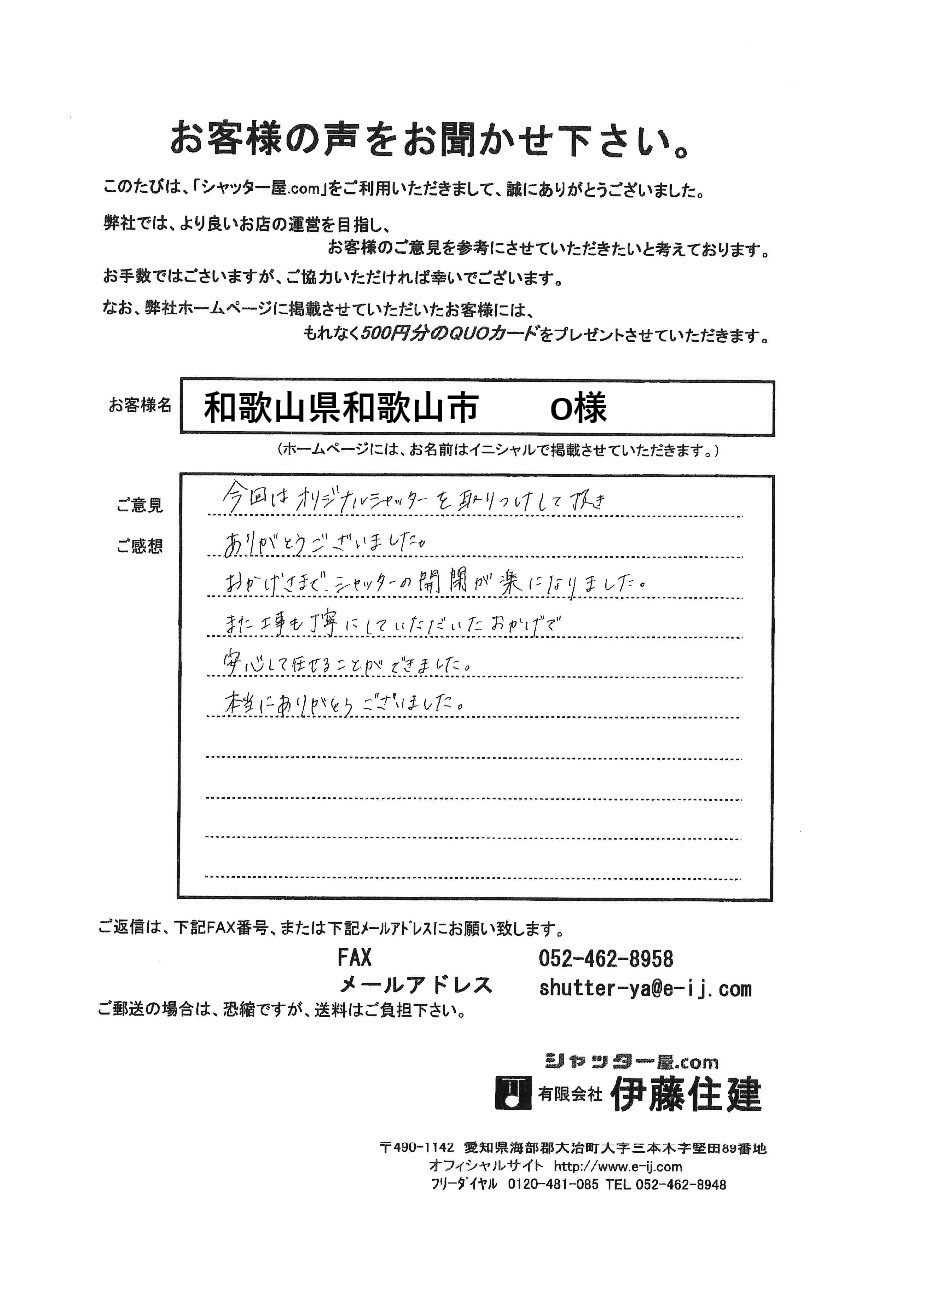 お客様の声をお聞かせ下さい。
このたびは、「シャッター屋.com」をご利用いただきまして、誠にありがとうございました。
弊社では、より良いお店の運営を目指し、
お客様のご意見を参考にさせていただきたいと考えております。
お手数ではございますが、ご協力いただければ幸いでございます。
なお、弊社ホームページに掲載させていただいたお客様には、
もれなく500円分のQUOカードをプレゼントさせていただきます。
お客様名 和歌山県和歌山市 O様
(ホームページには、お名前はイニシャルで掲載させていただきます。)
ご意見
ご感想
今回はオリジナルシャッターを取りつけして頂き
ありがとうございました。
おかげさまで、シャッターの開閉が楽になりました。
また工事も丁寧にしていただいたおかげで
安心して任せることができました。
本当にありがとうございました。
ご返信は、下記FAX番号、または下記メールアドレスにお願い致します。
FAX 052-462-8958
メールアドレス shutter-ya@e-ij.com
ご郵送の場合は、恐縮ですが、送料はご負担下さい。
シャッター屋.com
有限会社 伊藤住建
〒490-1142 愛知県海部郡大治町大字三本木字堅田89番地
オフィシャルサイト http://www.e-ij.com
フリーダイヤル 0120-481-085 TEL 052-462-8948